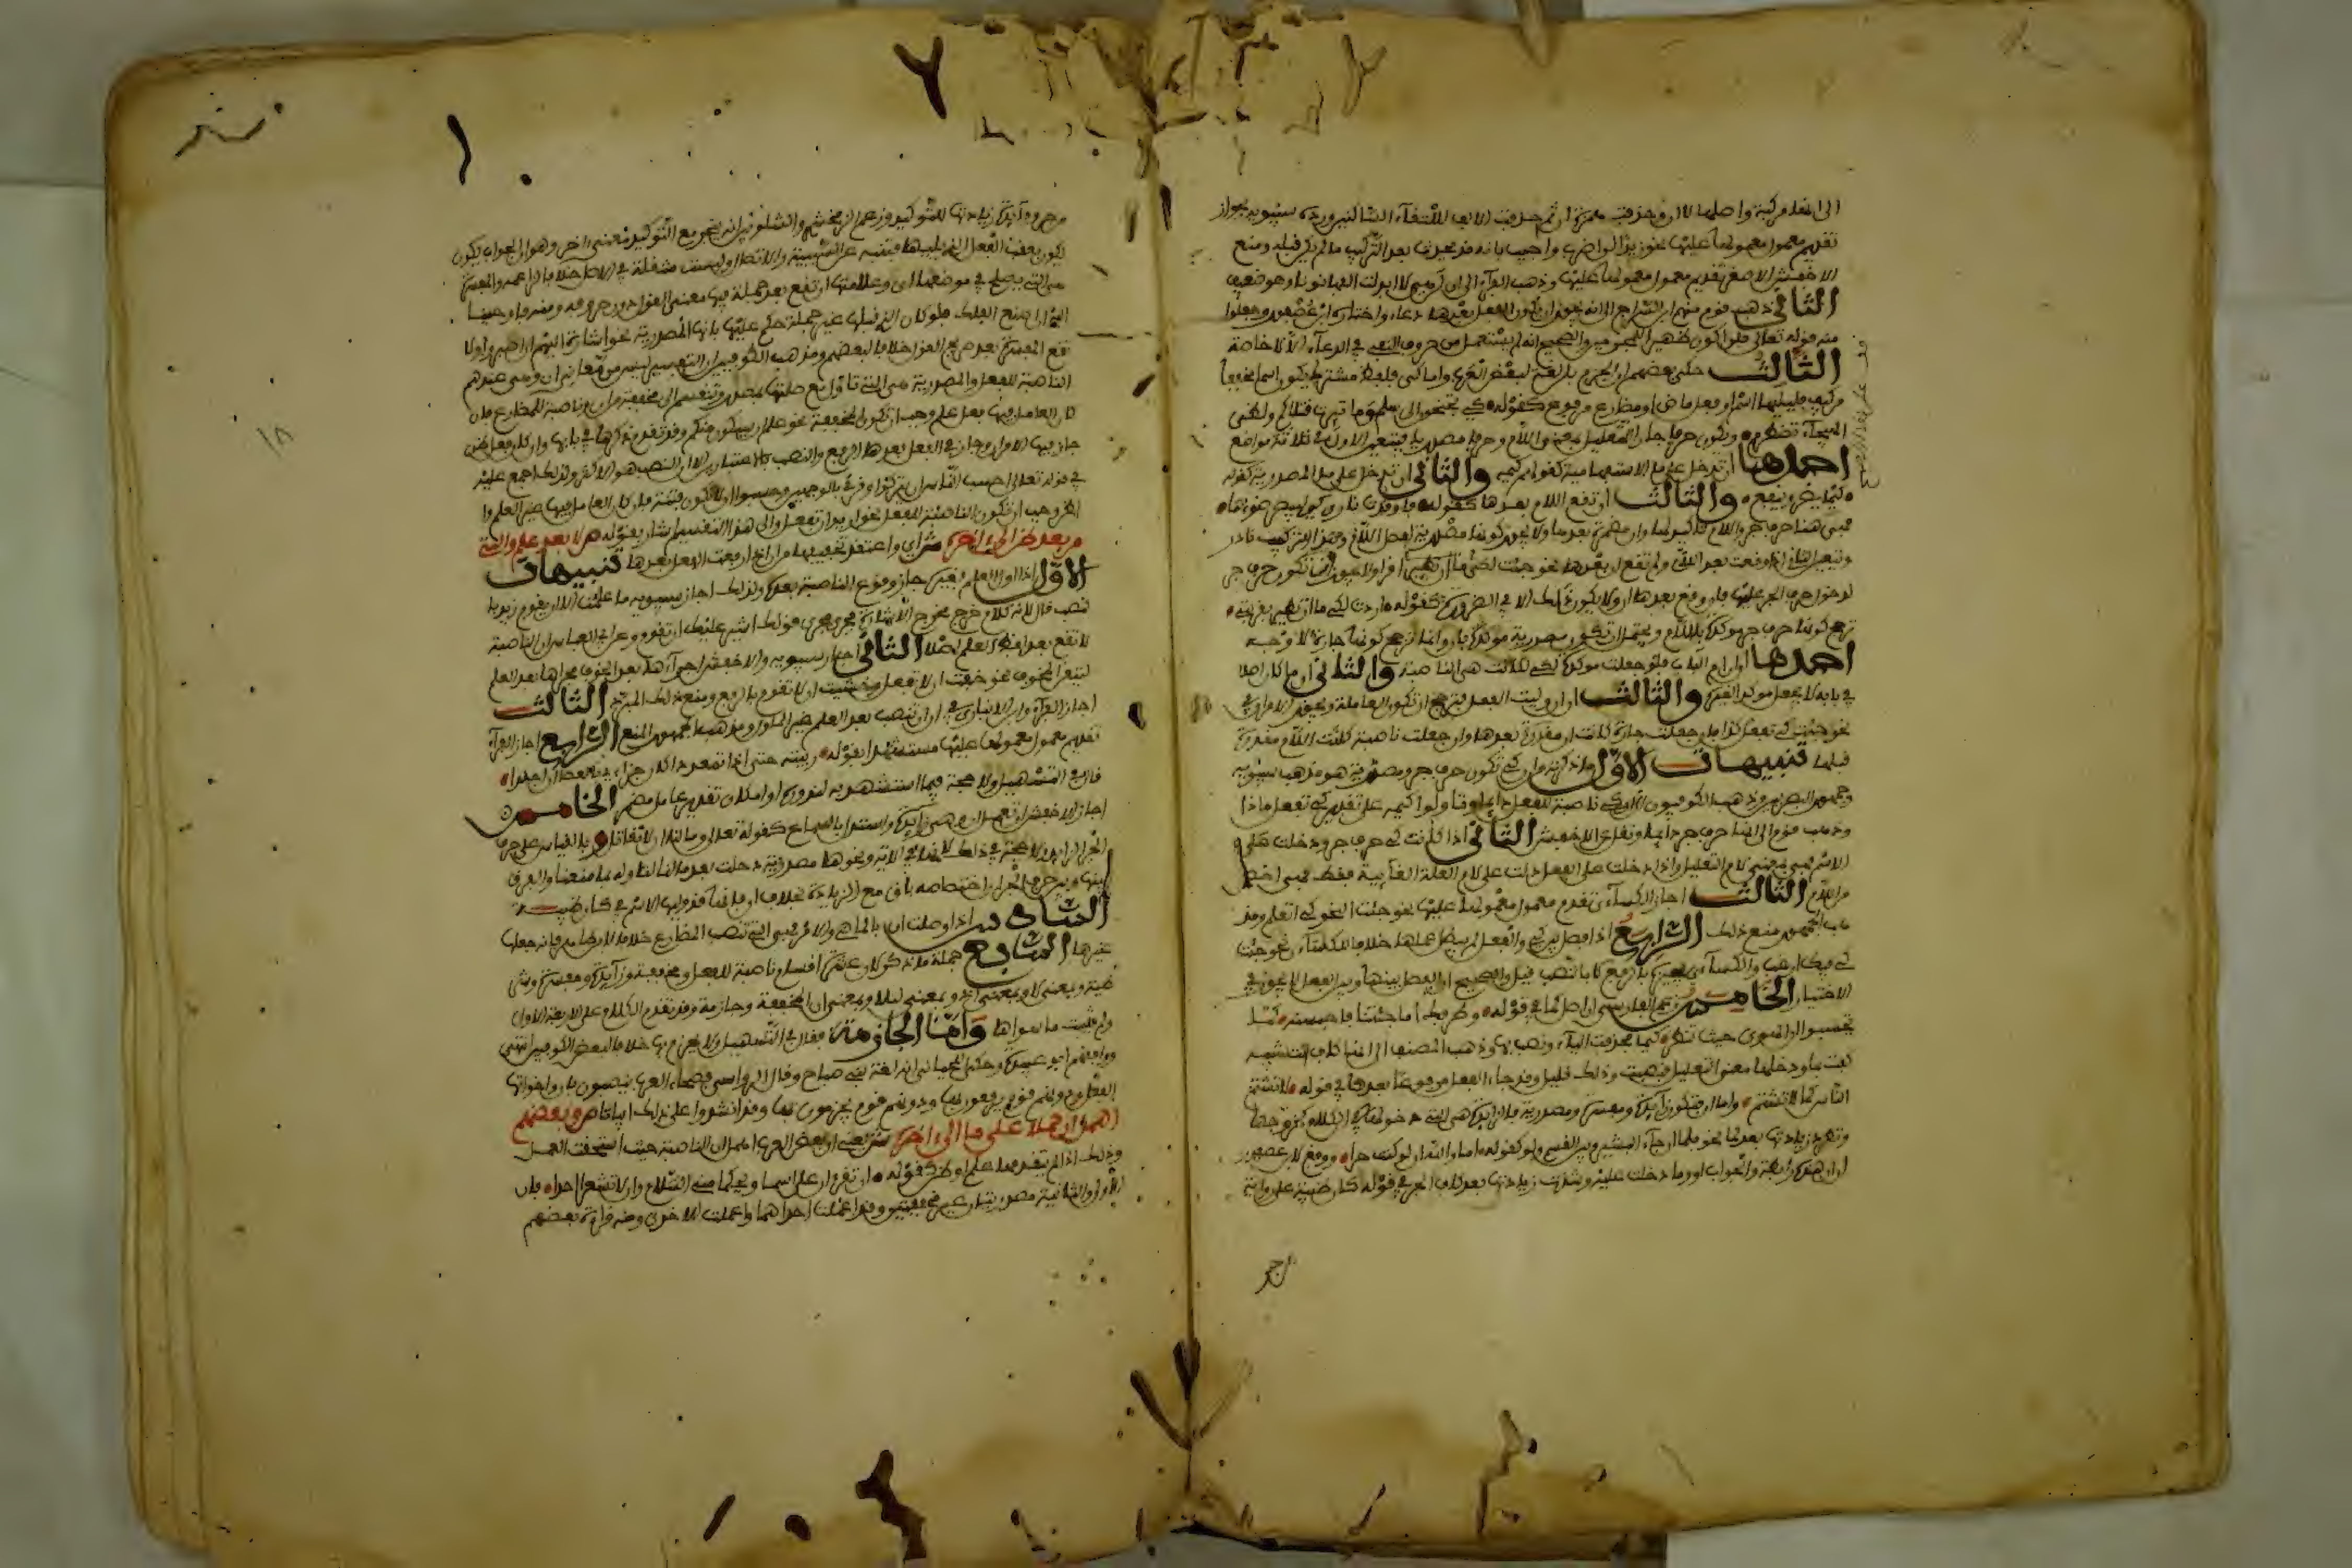 الى انها مركبة واصلها لا ان فحذفت همزة ان ثم حذفت الالف لالتقاء الساكنين ورده سيبويه بجواز
تقديم معمول معمولها عليها نحو زيدا لن اضرب واجيب بانه قد يحدث بعد التركيب ما لم يكن قبله ومنع
الاخفش الاصغر تقديم معمول معمولها عليها وذهب الفراء الى ان لن هي لا ابدلت الفها نونا وهو ضعيف
الثاني ذهب قوم منهم ابن السراج الى انه يجوز ان يكون الفعل بعدها دعاء واختاره ابن عصفور وجعلوا
منه قوله تعالى فلن اكون ظهيرا للمجرمين والصحيح انه لم يستعمل من حروف النفي في الدعاء الا لا خاصة
الثالث حكى بعضهم ان الجزم بلن لغة لبعض العرب واما كي فلفظ مشترك يكون اسما مخففا
من كيف فيليها اسم او فعل ماض او مضارع مرفوع كقوله كي تجنحون الى سلم وما ثئرت قتلاكم ولظى
الهيجاء تضطرم ويكون حرفا جارا للتعليل بمعنى اللام وحرفا مصدريا فيتعين الاول في ثلاثة مواضع
احدها ان تدخل على ما الاستفهامية كقولهم كيمه والثاني ان تدخل على ما المصدرية كقوله
كيما يضر وينفع والثالث ان تقع اللام بعدها كقوله فاوقدت ناري كي ليبصر ضوءها
فهي هنا حرف جر واللام تاكيد لها وان مضمرة بعدها ولا يجوز كونها مصدرية لفصل اللام وهذا التركيب نادر
لدخول حرف الجر عليها فان وقع بعدها ان ولا يكون ذلك الا في الضرورة كقوله اردت لكيما ان تطير بقربتي
ترجح كونها حرف جر مؤكدة للام ويحتمل ان تكون مصدرية مؤكدة بان وانما ترجح كونها جارة لاوجه
احدها ان ان ام الباب فلو جعلت مؤكدة لكي لكانت هي الناصبة والثاني ان ما كان اصلا
في بابه لا يجعل مؤكدا لغيره والثالث ان ان وليت الفعل فترجح ان تكون العاملة ويجوز الامران في
نحو جئت كي تفعل كذا فان جعلت جارة كانت ان مقدرة بعدها وان جعلت ناصبة كانت اللام مقدرة
قبلها تنبيهات الاول ما ذكرته من ان كي تكون حرف جر ومصدرية هو مذهب سيبويه
وجمهور البصريين وذهب الكوفيون الى ان كي ناصبة للفعل دائما وتاولوا كيمه على تقدير كي تفعل ماذا
وذهب قوم الى انها حرف جر دائما ونقل عن الاخفش الثاني اذا كانت كي حرف جر ودخلت على
الاسم فهي بمعنى لام التعليل واذا دخلت على الفعل دلت على لام العلة الغائية فقط فهي اخص
من اللام الثالث اجاز الكسائي تقدم معمول معمولها عليها نحو جئت النحو كي اتعلم ومذ
هب الجمهور منع ذلك الرابع اذا فصل بين كي والفعل لم يبطل عملها خلافا للكسائي نحو جئت
كي فيك ارغب والكسائي يجيزه بالرفع لا بالنصب قيل والصحيح ان الفصل بينها وبين الفعل لا يجوز في
الاختيار الخامس زعم الفارسي ان اصل كما في قوله وطرفك اما جئتنا فاحبسنه كما
يحسبوا ان الهوى حيث تنظر كيما فحذفت الياء ونصب بها وذهب المصنف الى انها كاف التشبيه
كفت بما ودخلها معنى التعليل فنصبت وذلك قليل وقد جاء الفعل مرفوعا بعدها في قوله لا تشتم
الناس كما لا تشتم واما ان فتكون زائدة ومفسرة ومصدرية فالزائدة هي التي دخولها في الكلام كخروجها
وتطرد زيادتها بعد لما نحو فلما ان جاء البشير وبين القسم ولو كقوله اما والله ان لو كنت حرا ووقع لابن عصفور
ان ان هذه رابطة والجواب لو وما دخلت عليه وشذت زيادتها بعد كاف الجر في قوله كان ظبية على رواية
الجر
١٨
يكون يعقب الفعل الذي يليها
التي يصلح في موضعها اي وعلامتها ان تقع بعد جملة فيها معنى القول دون حروفه ومنه فاوحينا
اليه ان اصنع الفلك فلو كان الذي قبلها غير جملة حكم عليها بانها المصدرية
تقع المفسرة بعد صريح القول خلافا لبعضهم ومذهب الكوفيين ان التفسير ليس من معاني ان وهي عندهم
الناصبة للفعل والمصدرية هي التي تاول مع صلتها بمصدر وتنقسم الى مخففة من ان وناصبة للمضارع فان
كان العامل فيها فعل علم وجب ان تكون المخففة نحو علم ان سيكون منكم وقد تقدم ذكرها في بابها وان كان فعل ظن
جاز فيها الامران وجاز في الفعل بعدها الرفع والنصب بالاعتبارين الا ان النصب هو الاكثر ولذلك اجمع عليه
في قوله تعالى احسب الناس ان يتركوا وقرئ بالوجهين وحسبوا ان لا تكون فتنة فان كان العامل فيها غير العلم والظن
وجب ان تكون الناصبة للفعل نحو اريد ان تفعل والى هذا التقسيم اشار بقوله لا بعد علم والتي
من بعد ظن الى اخره ش اي واعتقد تخفيفها من ان اذا رفعت الفعل بعدها تنبيهات
الاول اذا اول العلم بغيره جاز وقوع الناصبة بعده ولذلك اجاز سيبويه ما علمت الا ان يقوم زيد با
لنصب قال لانه كلام خرج مخرج الاشارة فجرى مجرى قولك اشير عليك ان تقوم وعن ابي العباس ان الناصبة
لا تقع بعد لفظ العلم اصلا الثاني اجاز سيبويه والاخفش اجراءها بعد الخوف مجراها بعد العلم
لتيقن المخوف نحو خفت ان لا تفعل وخشيت ان لا تقوم بالرفع ومنع ذلك المبرد الثالث
اجاز الفراء وابن الانباري ان تنصب بعد العلم غير المؤول ومذهب الجمهور المنع الرابع اجاز الفراء
تقديم معمول معمولها عليها مستشهدا بقوله ربيته حتى اذا تمعددا كان جزائي بالعصا ان اجلدا
قال في التسهيل ولا حجة فيما استشهد به لندوره او امكان تقدير عامل مضمر الخامس
اجاز الاخفش ان تعمل ان وهي زائدة واستدل بالسماع كقوله تعالى وما لنا ان لا نقاتل وبالقياس على حرف
الجر الزائد ولا حجة في ذلك لانها في الاية ونحوها مصدرية دخلت بعد ما لنا لتاوله بما منعنا والفرق
بينها وبين حرف الجر ان اختصاصه باق مع الزيادة بخلاف ان فانها قد وليها الاسم في كان ظبية
السادس اذا وصلت ان بالماضي والامر فهي التي تنصب المضارع خلافا لابن طاهر فانه جعلها
غيرها السابع جملة ما ذكر لان عشرة اقسام ناصبة للفعل ومخففة وزائدة ومفسرة وشر
طية وبمعنى لا وبمعنى اذ وبمعنى ليلا وبمعنى ان المخففة وجازمة وقد تقدم الكلام على الاربعة الاول
ولم يثبت ما سواها واما الجازمة فقال في التسهيل ولا يجزم بها خلافا لبعض الكوفيين انتهى
ووافقهم ابو عبيدة وحكى اللحياني انها لغة بني صباح وقال الرواسي فصحاء العرب ينصبون بان واخواتها
الفعل ودونهم قوم يرفعون بها ودونهم قوم يجزمون بها وقد انشدوا على ذلك ابياتا ص وبعضهم
اهمل ان حملا على ما الى اخره ش يعني ان بعض العرب اهمل ان الناصبة حيث استحقت العمل
وذلك اذا لم يتقدمها علم او ظن كقوله ان تقران على اسماء ويحكما مني السلام وان لا تشعرا احدا فان
الاولى والثانية مصدريتان غير مخففتين وقد اعملت احداهما واهملت الاخرى ومنه قراءة بعضهم